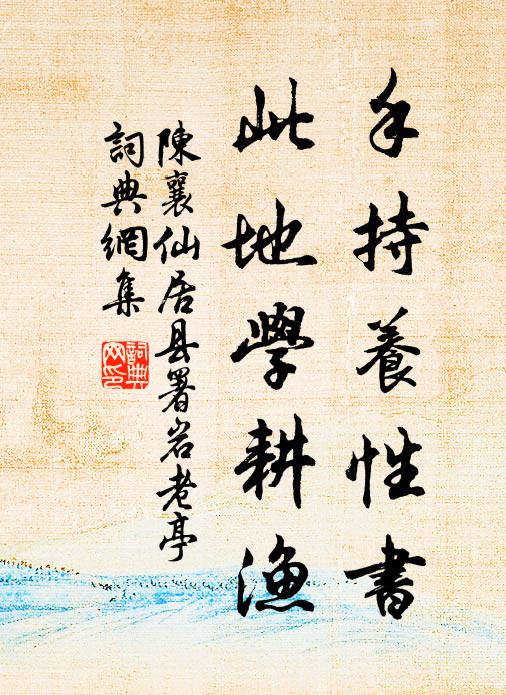 手持養性書
此地學耕漁
陳襄仙居县署岩老亭
詞典網集
詞典
网印